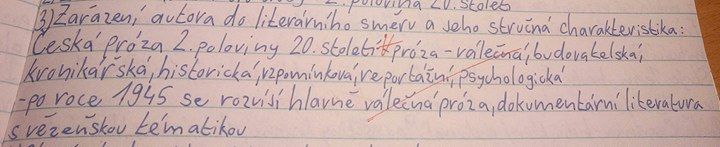 2. polovina 20. století
3) Zařazení autora do literárního směru a jeho stručná charakteristika:
Česká próza 2. poloviny 20. století próza - válečná, budovatelská,
kronikářská, historická, vzpomínková, reportážní, psychologická
- po roce 1945 se rozvíjí hlavně válečná próza, dokumentární literatura
s vězeňskou tématikou